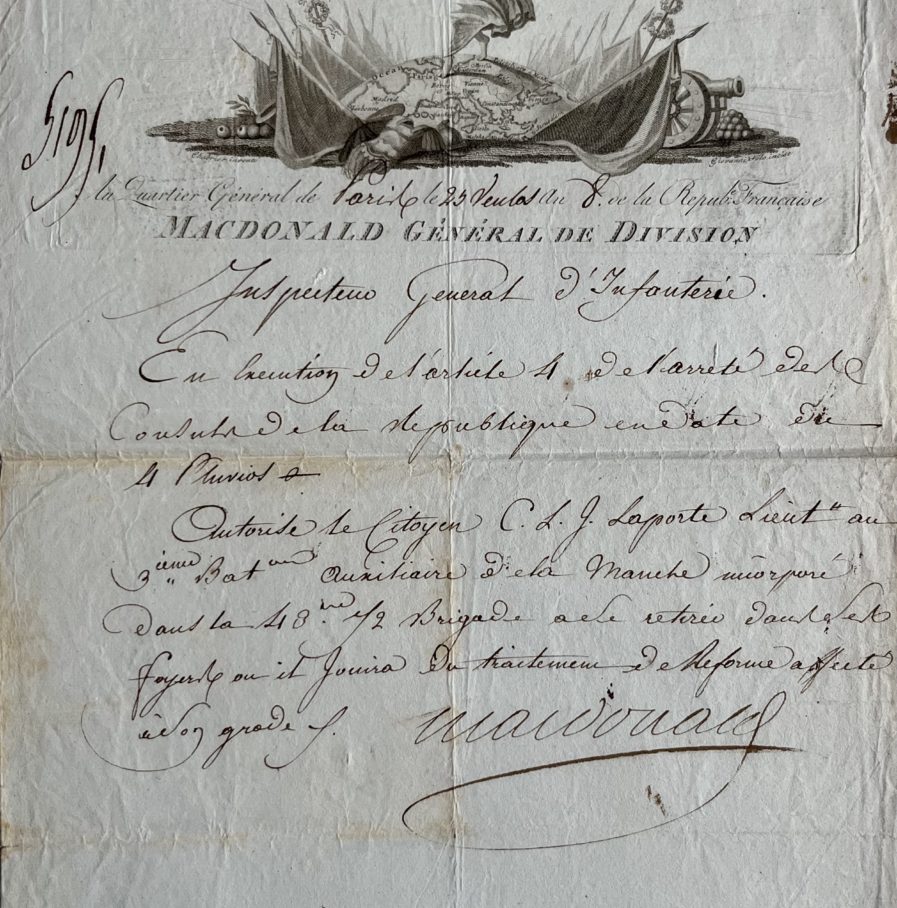 Océan
Paris
Madrid
Vienne
Constantinople
Au Quartier Général de Paris le 25 Ventos an 8. de la Republ.e Française
MACDONALD GÉNÉRAL DE DIVISION
Inspecteur General d'Infanterie.
En Execution de l'article 4 de l'arrêté des
Consuls de la Republique en date du
4 Pluviose
Autorise le Citoyen C. L. J. Laporte Lieut.t au
3.ieme Bat.on auxiliaire de la Manche incorporé
dans la 43.me 1/2 Brigade a se retirée dans ses
foyers ou il Jouira du traitement de Reforme affecté
à son grade.
Macdonald